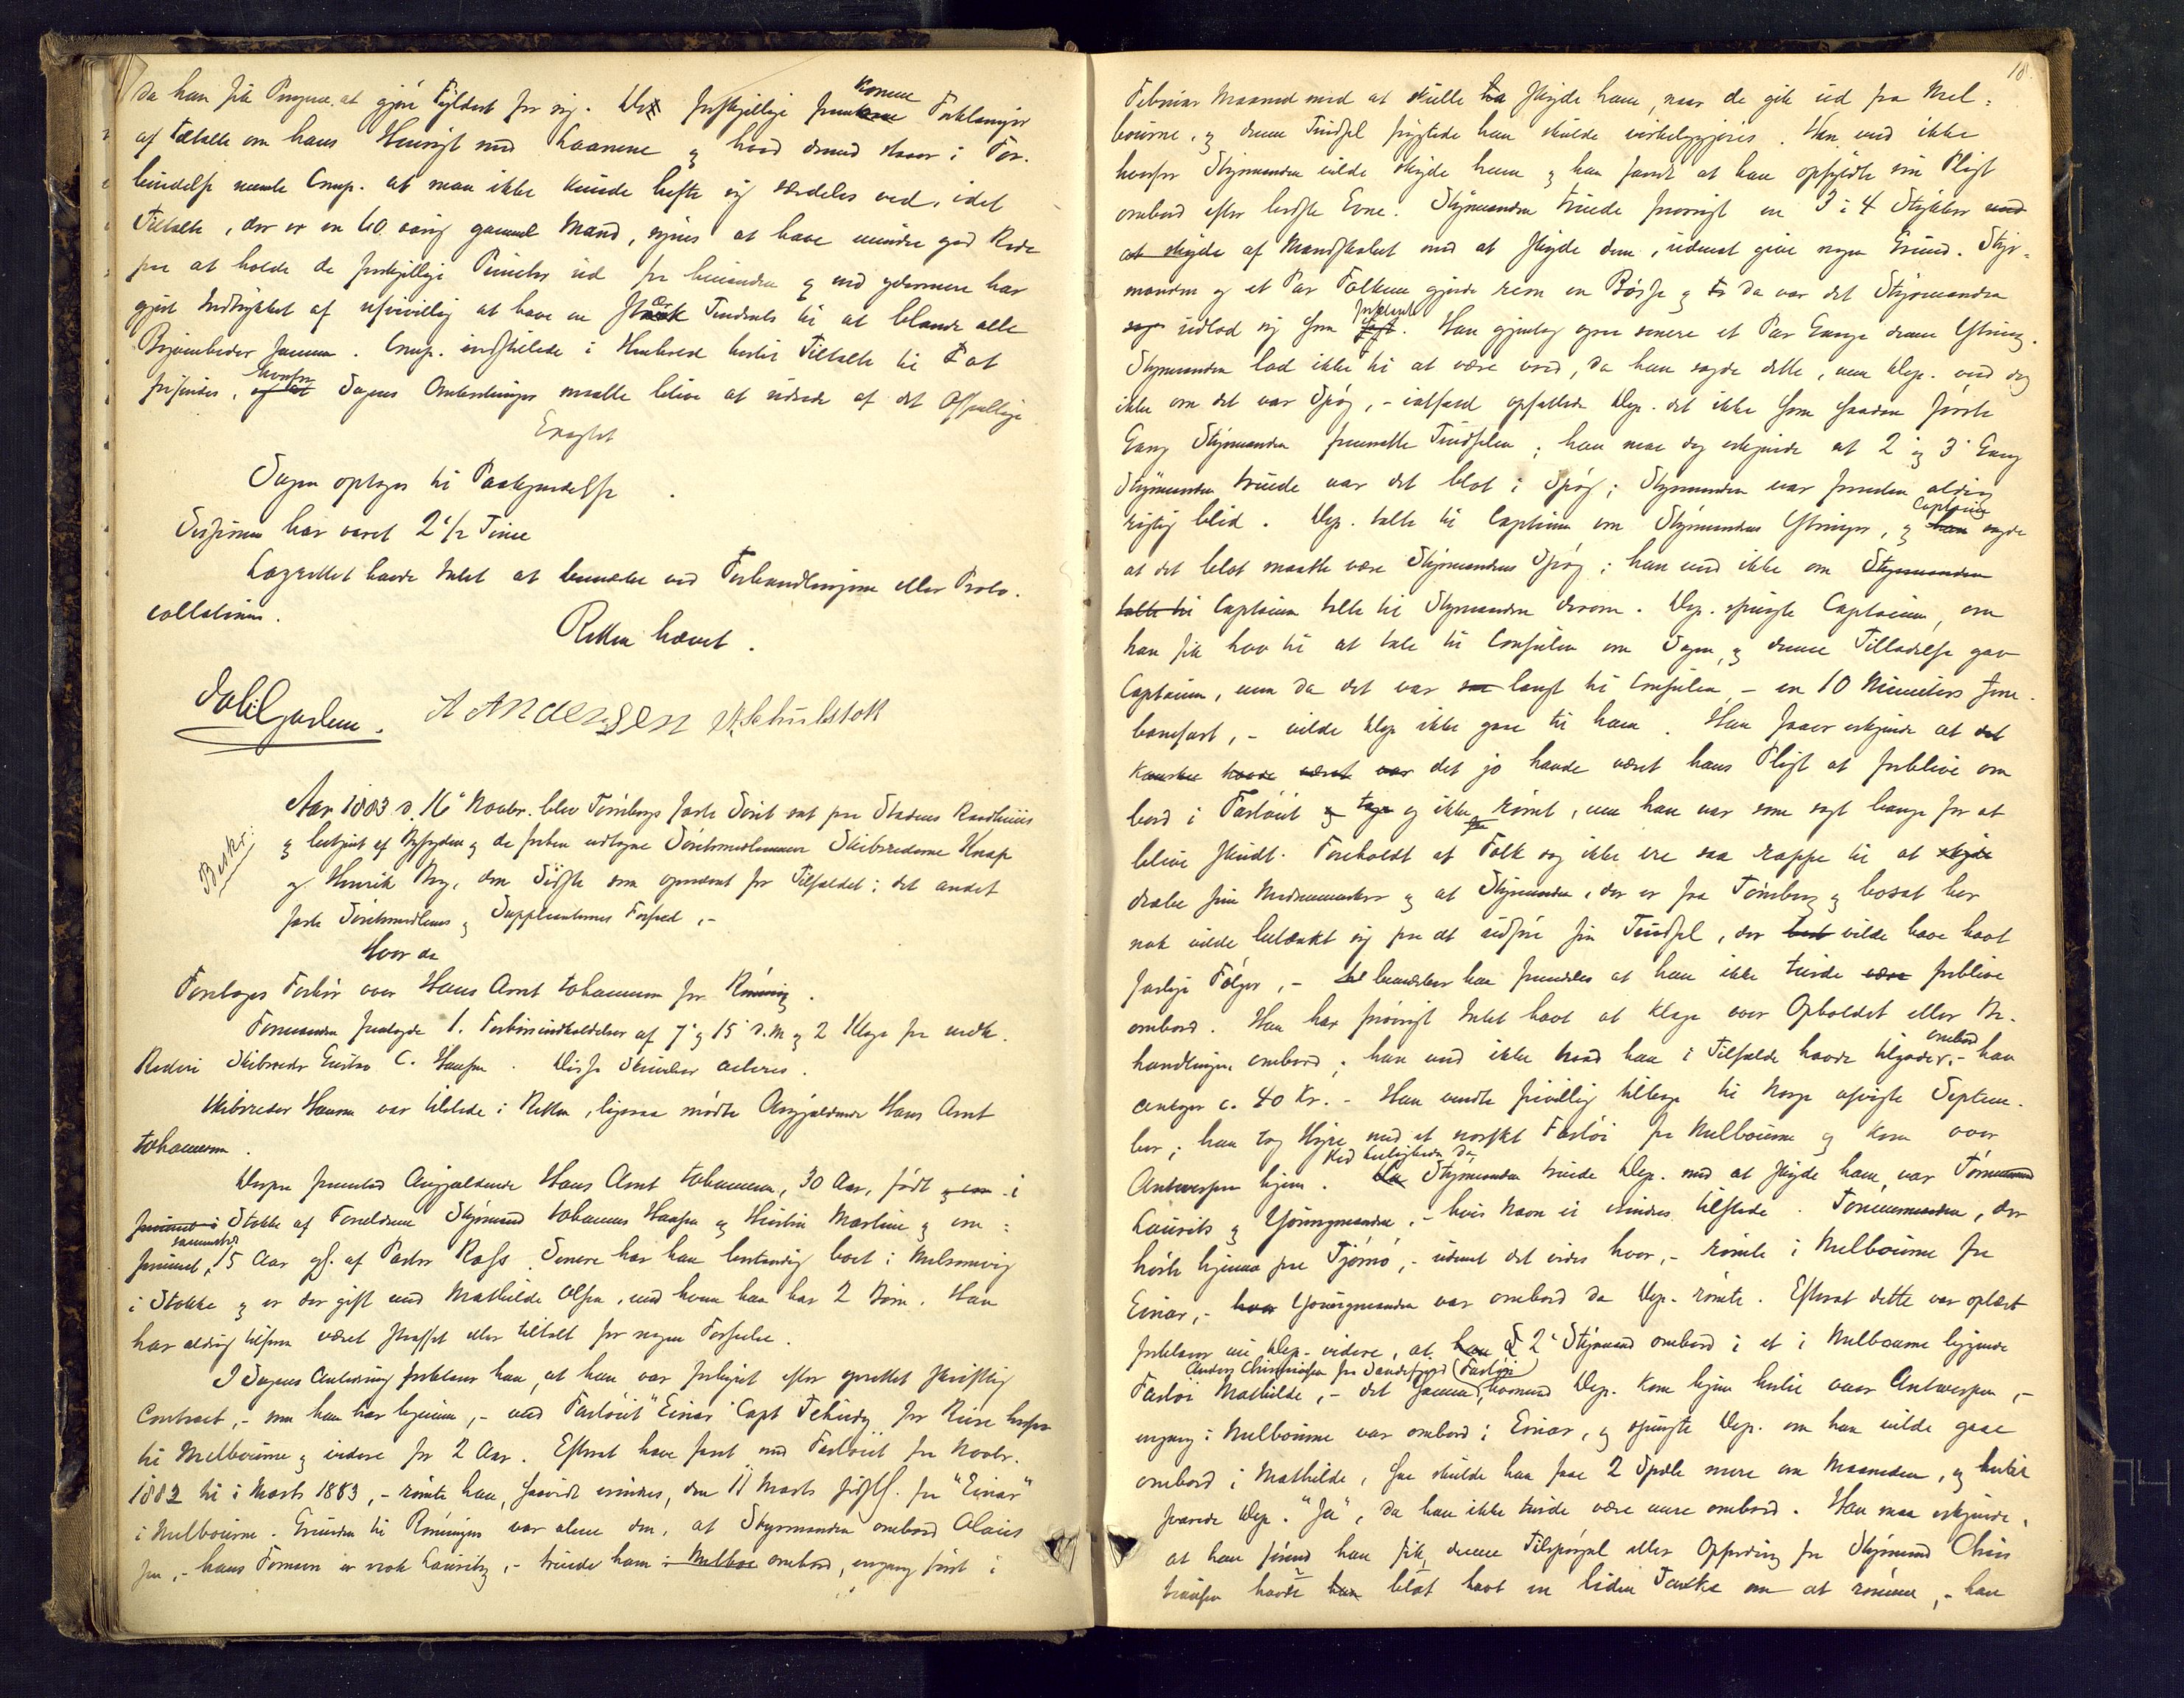 da han fik Pengene at gjøre Fyldest for sig. De forskjellige fremkomne Forklaringer
af Tiltalte om hans Hensigt med Laanene og hvad dermed staaer i For-
bindelse mente Comp. at man ikke kunde hefte sig særdeles ved, idet
Tiltalte, der er en 60 aarig gammel Mand, synes at have mindre god Rede
paa at holde de forskjellige Puncter ud fra hinanden og med ydermere har
gjort Indtrykket af ufrivillig at have en stærk Tendents til at blande alle
Begivenheder sammen. Comp. indstillede i Henhold hertil Tiltalte til at
frifindes, hvorfor Sagens Omkostninger maatte blive at udrede af det Offentlige
Eragtet
Sagen optages til Paakjendelse.
Sessionen har varet 2 1/2 Time
Lagrettet havde Intet at bemærke ved Forhandlingerne eller Proto-
collationen.
Retten hævet.
A Andersen Schulstok
Beskr.
Aar 1883 d. 16de Novbr. blev Tønsbergs faste Søret sat paa Stadens Raadhuus
og betjent af Byfogden og de forhen udtagne Søretsmedlemmer Skibsrederne Knap
og Henrik Bry, den Sidste som opnævnt for Tilfældet i det andet
faste Søretsmedlems og Suppleanternes Forfald,-
Hvor da
Foretoges Forhør over Hans Arnt Johannesen for Rømning.
Formanden fremlagde 1. Forhørsindkaldelser af 7de og 15de d.M. og 2 Klage fra vedk.
Rederi Skibsreder Gustav C. Hansen. Disse Skrivelser acteres.
Skibsreder Hansen var tilstede i Retten, ligesaa mødte Angjældende Hans Arnt
Johannesen.
Derpaa fremstod Angjældende Hans Arnt Johannesen, 30 Aar, født i
Stokke af Forældrene Styrmand Johannes Hansen og Kirstine Martine og con-
firmeret sammesteds, 15 Aar gl. af Pastor Rafs. Senere har han bestandig boet i Melsomvig
i Stokke og er der gift med Mathilde Olsen, med hvem han har 2 Børn. Han
har aldrig tilforn været straffet eller tiltalt for nogen Forseelse.
I Sagens Anledning forklarer han, at han var forhyret efter oprettet skriftlig
Contract,- som han har hjemme,- med Fartøiet "Einar" Capt for Reise herfra
til Melbourne og videre for 2 Aar. Efterat have faret med Fartøiet fra Novbr.
1882 til i Marts 1883,- rømte han, saavidt erindres, den 11 Marts sidstl. fra "Einar"
i Melbourne. Grunden til Rømningen var alene den, at Styrmanden ombord Olaus
 ,- hans Fornavn er nok Lauritz,- truede ham i Melbo ombord, engang først i
18.
Februar Maaned med at skulle ha skyde ham, naar de gik ud fra Mel-
bourne, og denne Trudsel frygtede han skulde virkeliggjøres. Han ved ikke
hvorfor Styrmanden vilde skyde ham og han fandt at han opfyldte sin Pligt
ombord efter bedste Evne. Styrmanden truede forøvrigt en 3 à 4 Stykker med
at skyde af Mandskabet med at skyde dem, uden at give nogen Grund. Styr-
manden og et Par Folkene gjorde rene en Bøsse og da var det Styrmanden
udlod sig som forklaret. Han gjentog ogsaa senere et Par Gange denne Ytring.
Styrmanden lod ikke til at være vred, da han sagde dette, men Dep. ved dog
ikke om det var Spøg,- ialfald opfattede Dep. det ikke som saadan første
Gang Styrmanden fremsatte Trudselen; han maa dog erkjende at 2 og 3die Gang
Styrmanden truede var det blot i Spøg; Styrmanden var forresten aldrig
rigtig blid. Dep. talte til Captainen om Styrmandens Ytringer, og Captainen sagde
at det blot maatte være Styrmandens Spøg; han ved ikke om Styrmanden
talte til Captainen talte til Styrmanden derom. Dep. spurgte Captainen, om
han fik Lov til at tale til Consulen om Sagen, og denne Tilladelse gav
Captainen, men da det var saa langt til Consulen,- en 10 Minuters Jern-
banefart,- vilde Dep ikke gaae til ham. Han faaer erkjende at det
kanskee havde været var det jo havde været hans Pligt at forblive om
bord i Fartøiet og ikke rømt, men han var som sagt bange for at
blive skudt. Foreholdt at Folk dog ikke ere saa rappe til at skyde
dræbe sine Medmennesker og at Styrmanden, der er fra Tønsberg og bosat her
nok vilde betænkt sig paa at udføre sin Trudsel, der vilde have havt
farlige Følger,- bemærker han fremdeles at han ikke turde være forblive
ombord. Han har forøvrigt Intet havt at klage over Opholdet eller Be-
handlingen ombord; han ved ikke hvad han i Tilfælde havde tilgode ombord,- han
antager c. 40 Kr.- Han vendte frivillig tilbage til Norge afvigte Septem-
ber; han tog Hyre med et norskt Fartøi fra Melbourne og kom over
Antwerpen hjem. Ved Leiligheden da Styrmanden truede Dep. med at skyde ham, var Tømmermand
Laurits og Youngmanden,- hvis Navn ei erindres tilstede. Tømmermanden, der
hørte hjemme paa Tjømø,- uden at det vides hvor,- rømte i Melbourne fra
Einar,- Youngmanden var ombord da Dep. rømte. Efterat dette var oplæst
forklarer nu Dep. videre, at 2den Styrmand ombord i et i Melbourne liggende
Fartøi Mathilde, Anders Christensen fra Sandefjord,- det samme (Fartøi) hvormed Dep. kom hjem hertil over Antwerpen,-
engang i Melbourne var ombord i Einar, og spurgte Dep. om han vilde gaae
ombord i Mathilde, saa skulde han faae 2 Spdle mere om Maaneden, og hertil
svarede Dep. "Ja", da han ikke turde være mere ombord. Han maa erkjende,
at han førend han fik denne Tilspørgsel eller Opfordring fra Styrmand Chris
tensen havde han blot havt en liden Tanke om at rømme,- han